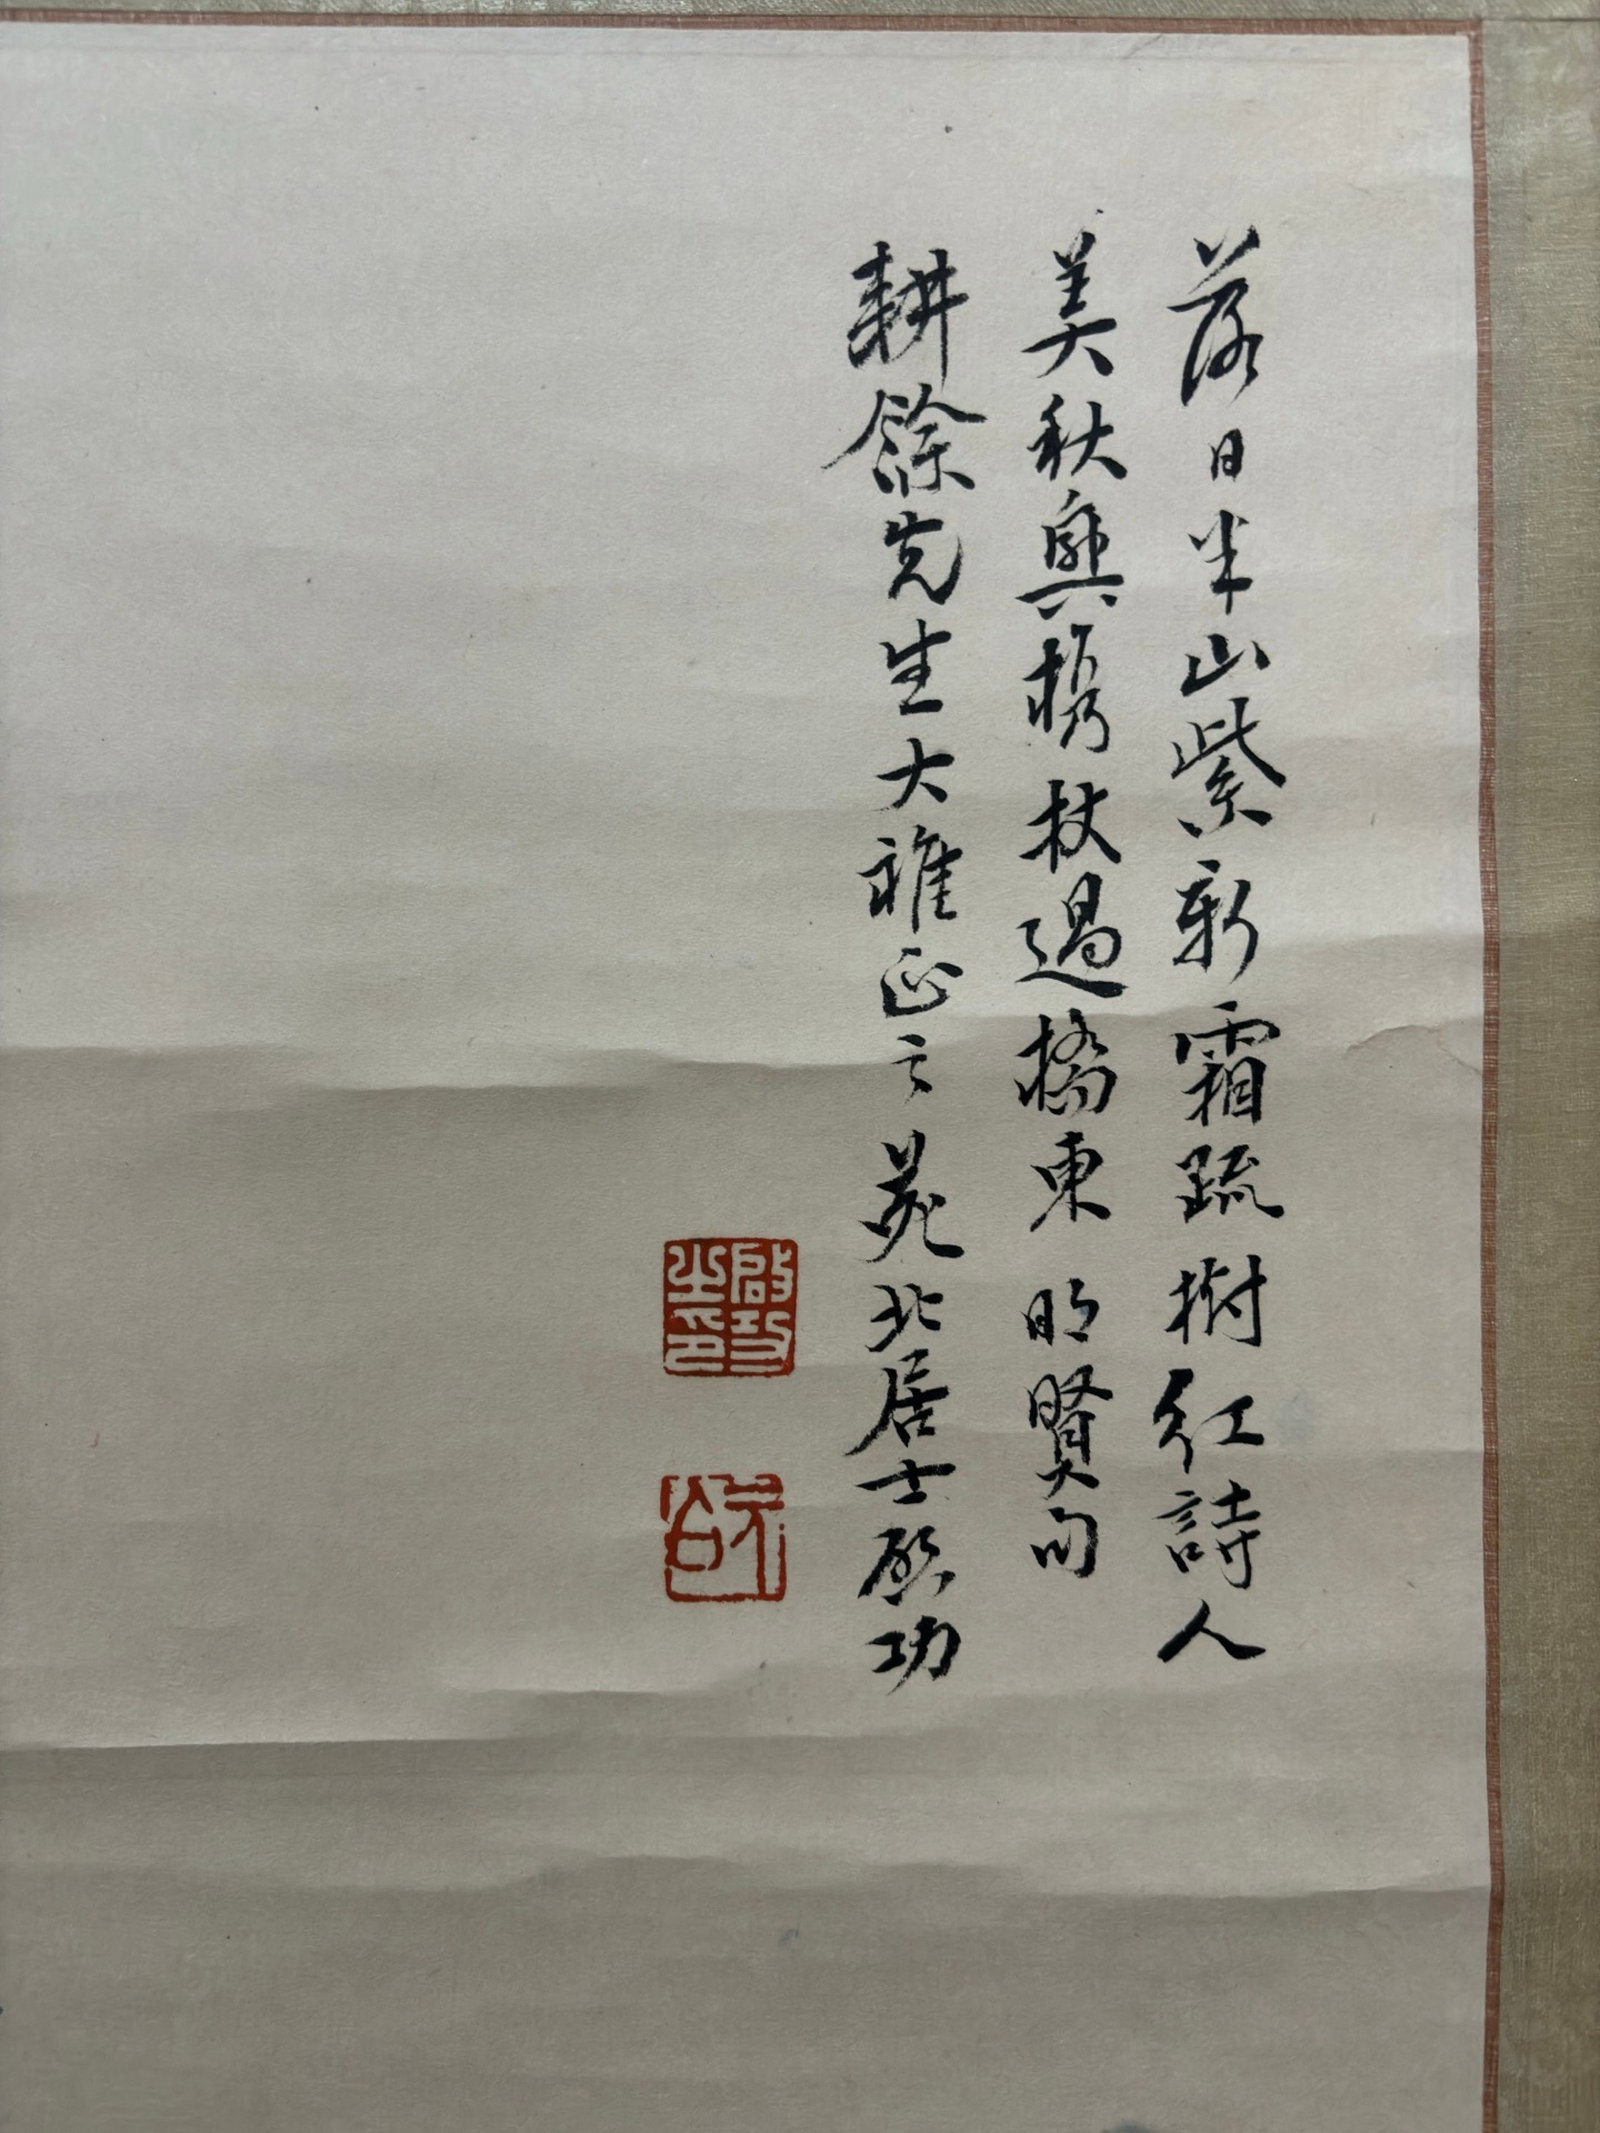 落日半山紫新霜疏樹紅詩人
美秋興携杖過橋東 明賢句
耕餘先生大雅正之 苑北居士啟功
啟功之印
元白